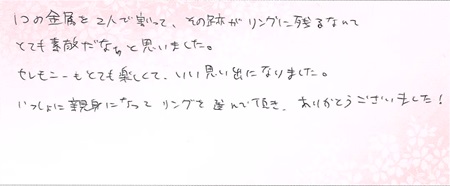 1つの金属を2人で割って、その跡がリングに残るなんて
とても素敵だなぁと思いました。
セレモニーもとても楽しくて、いい思い出になりました。
いっしょに親身になって リングを 選んで頂き、ありがとうございました!